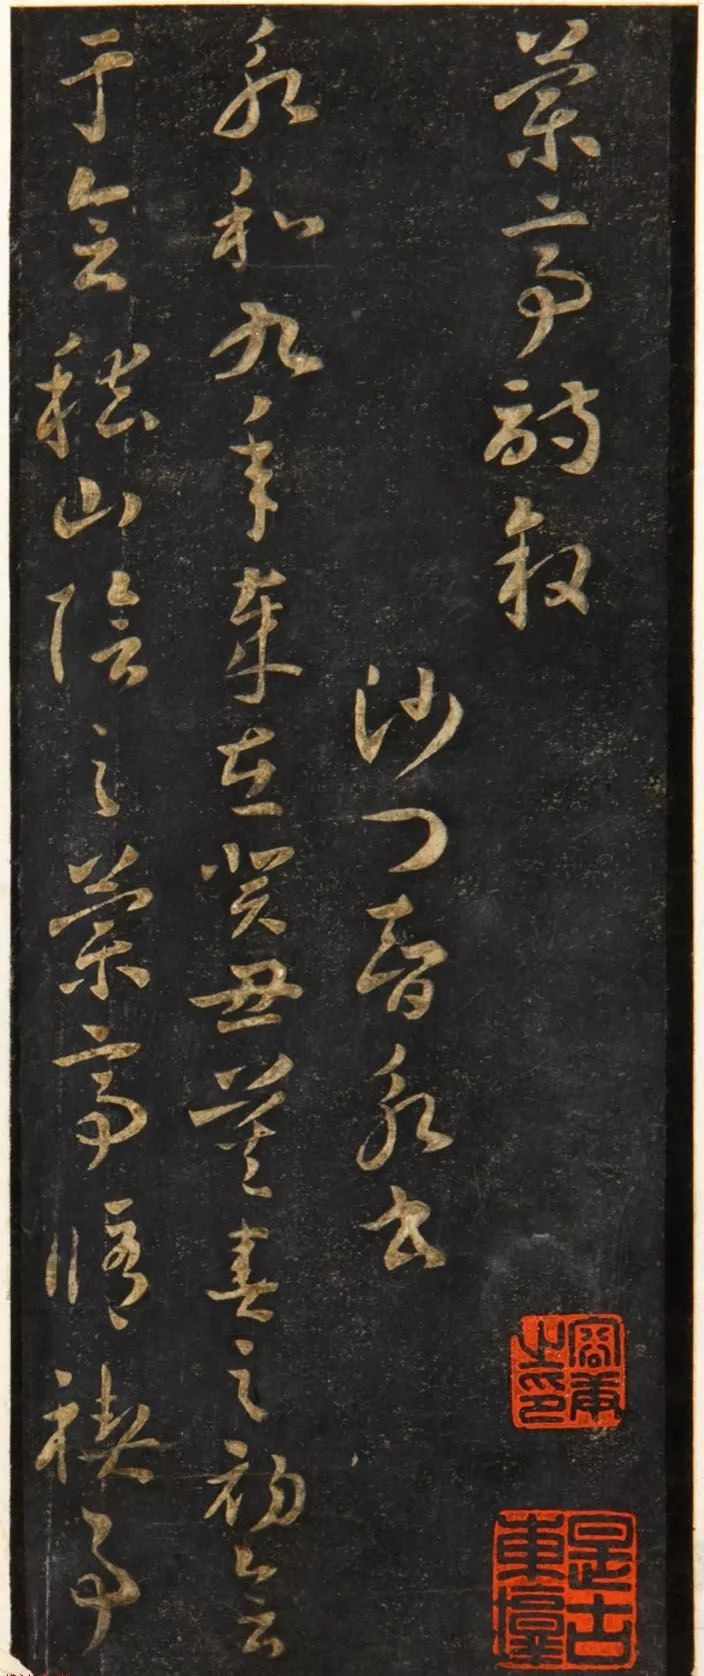 蘭亭詩叙
沙門智永書
永和九年歲在癸丑暮春之初會
于會稽山陰之蘭亭脩禊事
之印
是古
東壇